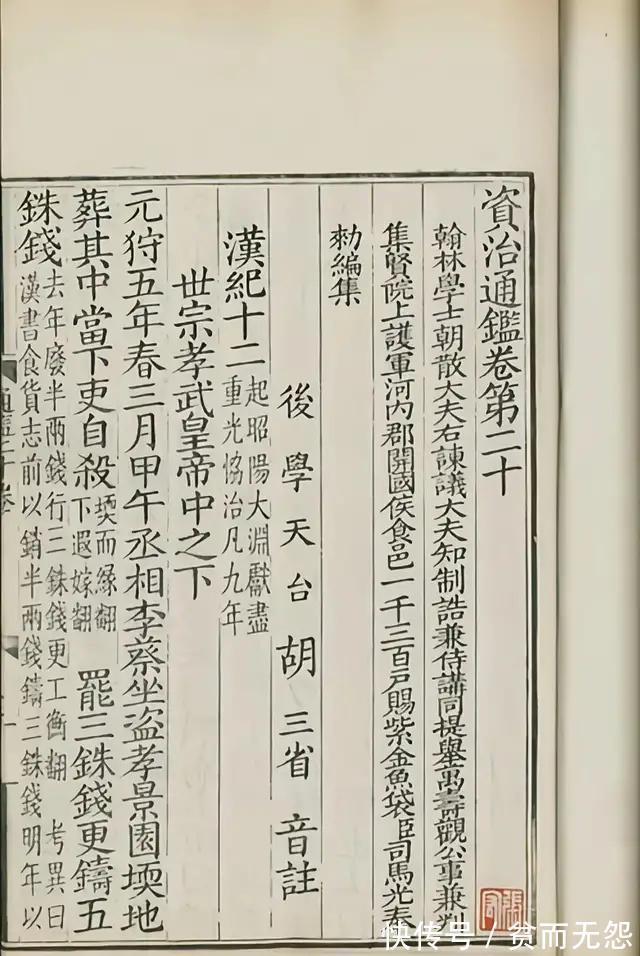 資治通鑑卷第二十
翰林學士朝散大夫右諫議大夫知制誥兼侍講同提舉萬壽觀公事兼判
集賢院上護軍河內郡開國侯食邑一千三百戸賜紫金魚袋臣司馬光奉
勑編集
後學天台胡三省音註
漢紀十二 起昭陽大淵獻盡
重光協洽凡九年
世宗孝武皇帝中之下
元狩五年春三月甲午丞相李蔡坐盜孝景園堧地
葬其中當下吏自殺 堧而緣翻
下遐嫁翻
罷三銖錢更鑄五
銖錢 去年廢半兩錢行三銖錢更工衡翻 考異曰
漢書食貨志前以銷半兩錢鑄三銖錢明年以
快传号 / 贫而无怨